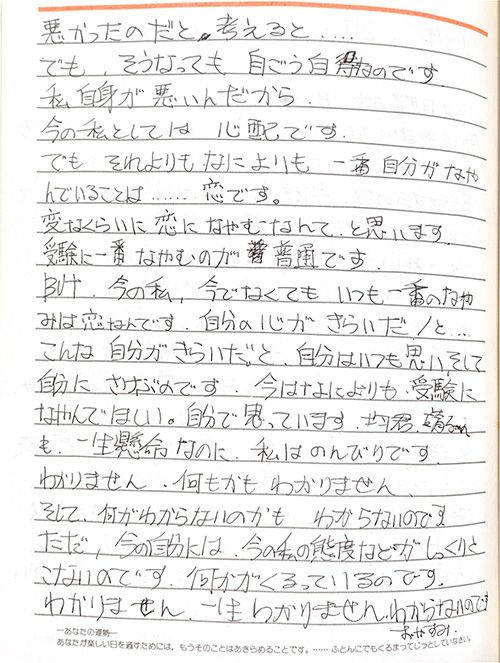 悪かったのだと、考えると.....
でも、そうなっても 自ごう自得なのです
私自身が悪いんだから.
今の私としては 心配です.
でも それよりもなによりも 一番 自分がなや
んでいることは...... 恋です。
変なくらいに 恋になやむなんて.と思います.
受験に一番 なやむのが 普通です
BUT. 今の私, 今でなくても いつも一番のなや
みは恋なんです. 自分の心が きらいだ!と...
こんな 自分がきらいだ。と 自分はいつも思い,そして
自分に さけぶのです. 今はなによりも.受験に
なやんでほしい。自分で思っています.
も. 一生懸命なのに. 私は のんびりです.
わかりません . 何もかも わかりません.
そして. 何がわからないのかも わからないのです
ただ, 今の自分には. 今の私の態度などが しっくりと
こないのです. 何かがくるっているのです.
わかりません. 一生 わかりません.わからないのです
おやすみ
―あなたの運勢―
あなたが楽しい日を過すためには、もうそのことはあきらめることです。……ふとんにでもくるまってじっとしていなさい。